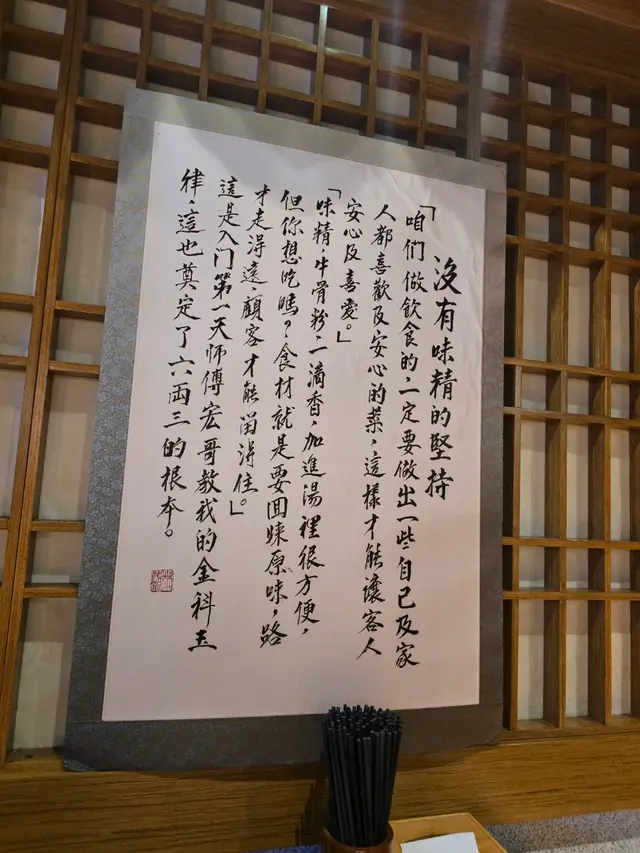 沒有味精的堅持
「咱們做飲食的，一定要做出一些自己及家
人都喜歡及安心的菜，這樣才能讓客人
安心及喜愛。」
「味精，牛骨粉，一滴香，加進湯裡很方便，
但你想吃嗎？食材就是要回味原味，路
才走得遠，顧客才能留得住。」
這是入门第一天师傅宏哥教我的金科玉
律，這也奠定了六両三的根本。